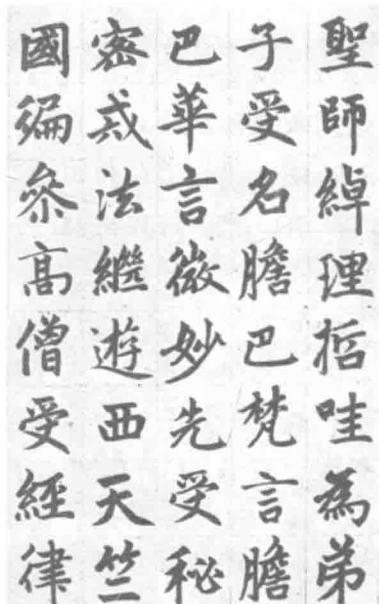 聖師綽理哲哇為弟
子受名膽巴梵言膽
巴華言微妙先受秘
密戒法繼遊西天竺
國徧叅高僧受經律